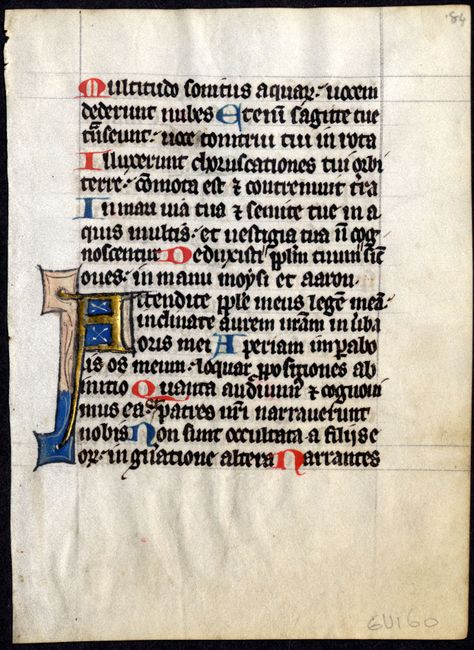 84
Multitudo sonitus aquaꝝ · uocem
dederunt nubes Eteni̅ sagitte tue
tn̅seunt · uox tonitrui tui in rota
Illuxerunt choruscationes tui orbi
terre · co̅mota est ⁊ contremuit t̅ra
In mari uia tua ⁊ semite tue in a
quis multis · et uestigia tua n̅ cog
noscentur Deduxisti pp̅lm tuum sic̅
oues · in manu moysi et aaron ·
Attendite pp̅le meus lege̅ mea̅ ·
inclinate aurem ur̅am in u̅ba
oris mei Aperiam in ꝑabo
lis os meum · loquar ꝓpositiones ab
initio Quanta audiuim᷒ ⁊ cognoui
mus ea · ⁊ patres nr̅i narrauerunt
nobis Non sunt occultata a filijs e
oꝝ · in gn̅atione altera Narrantes
GU160